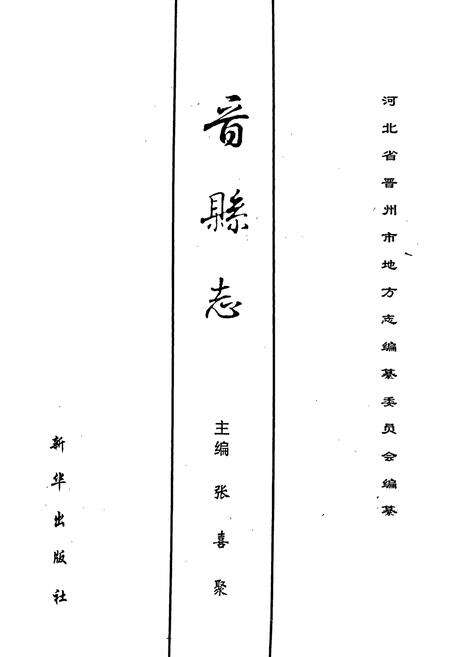 河北省晋州市地方志编纂委员会编纂
晋縣志
主编 张喜聚
新华出版社